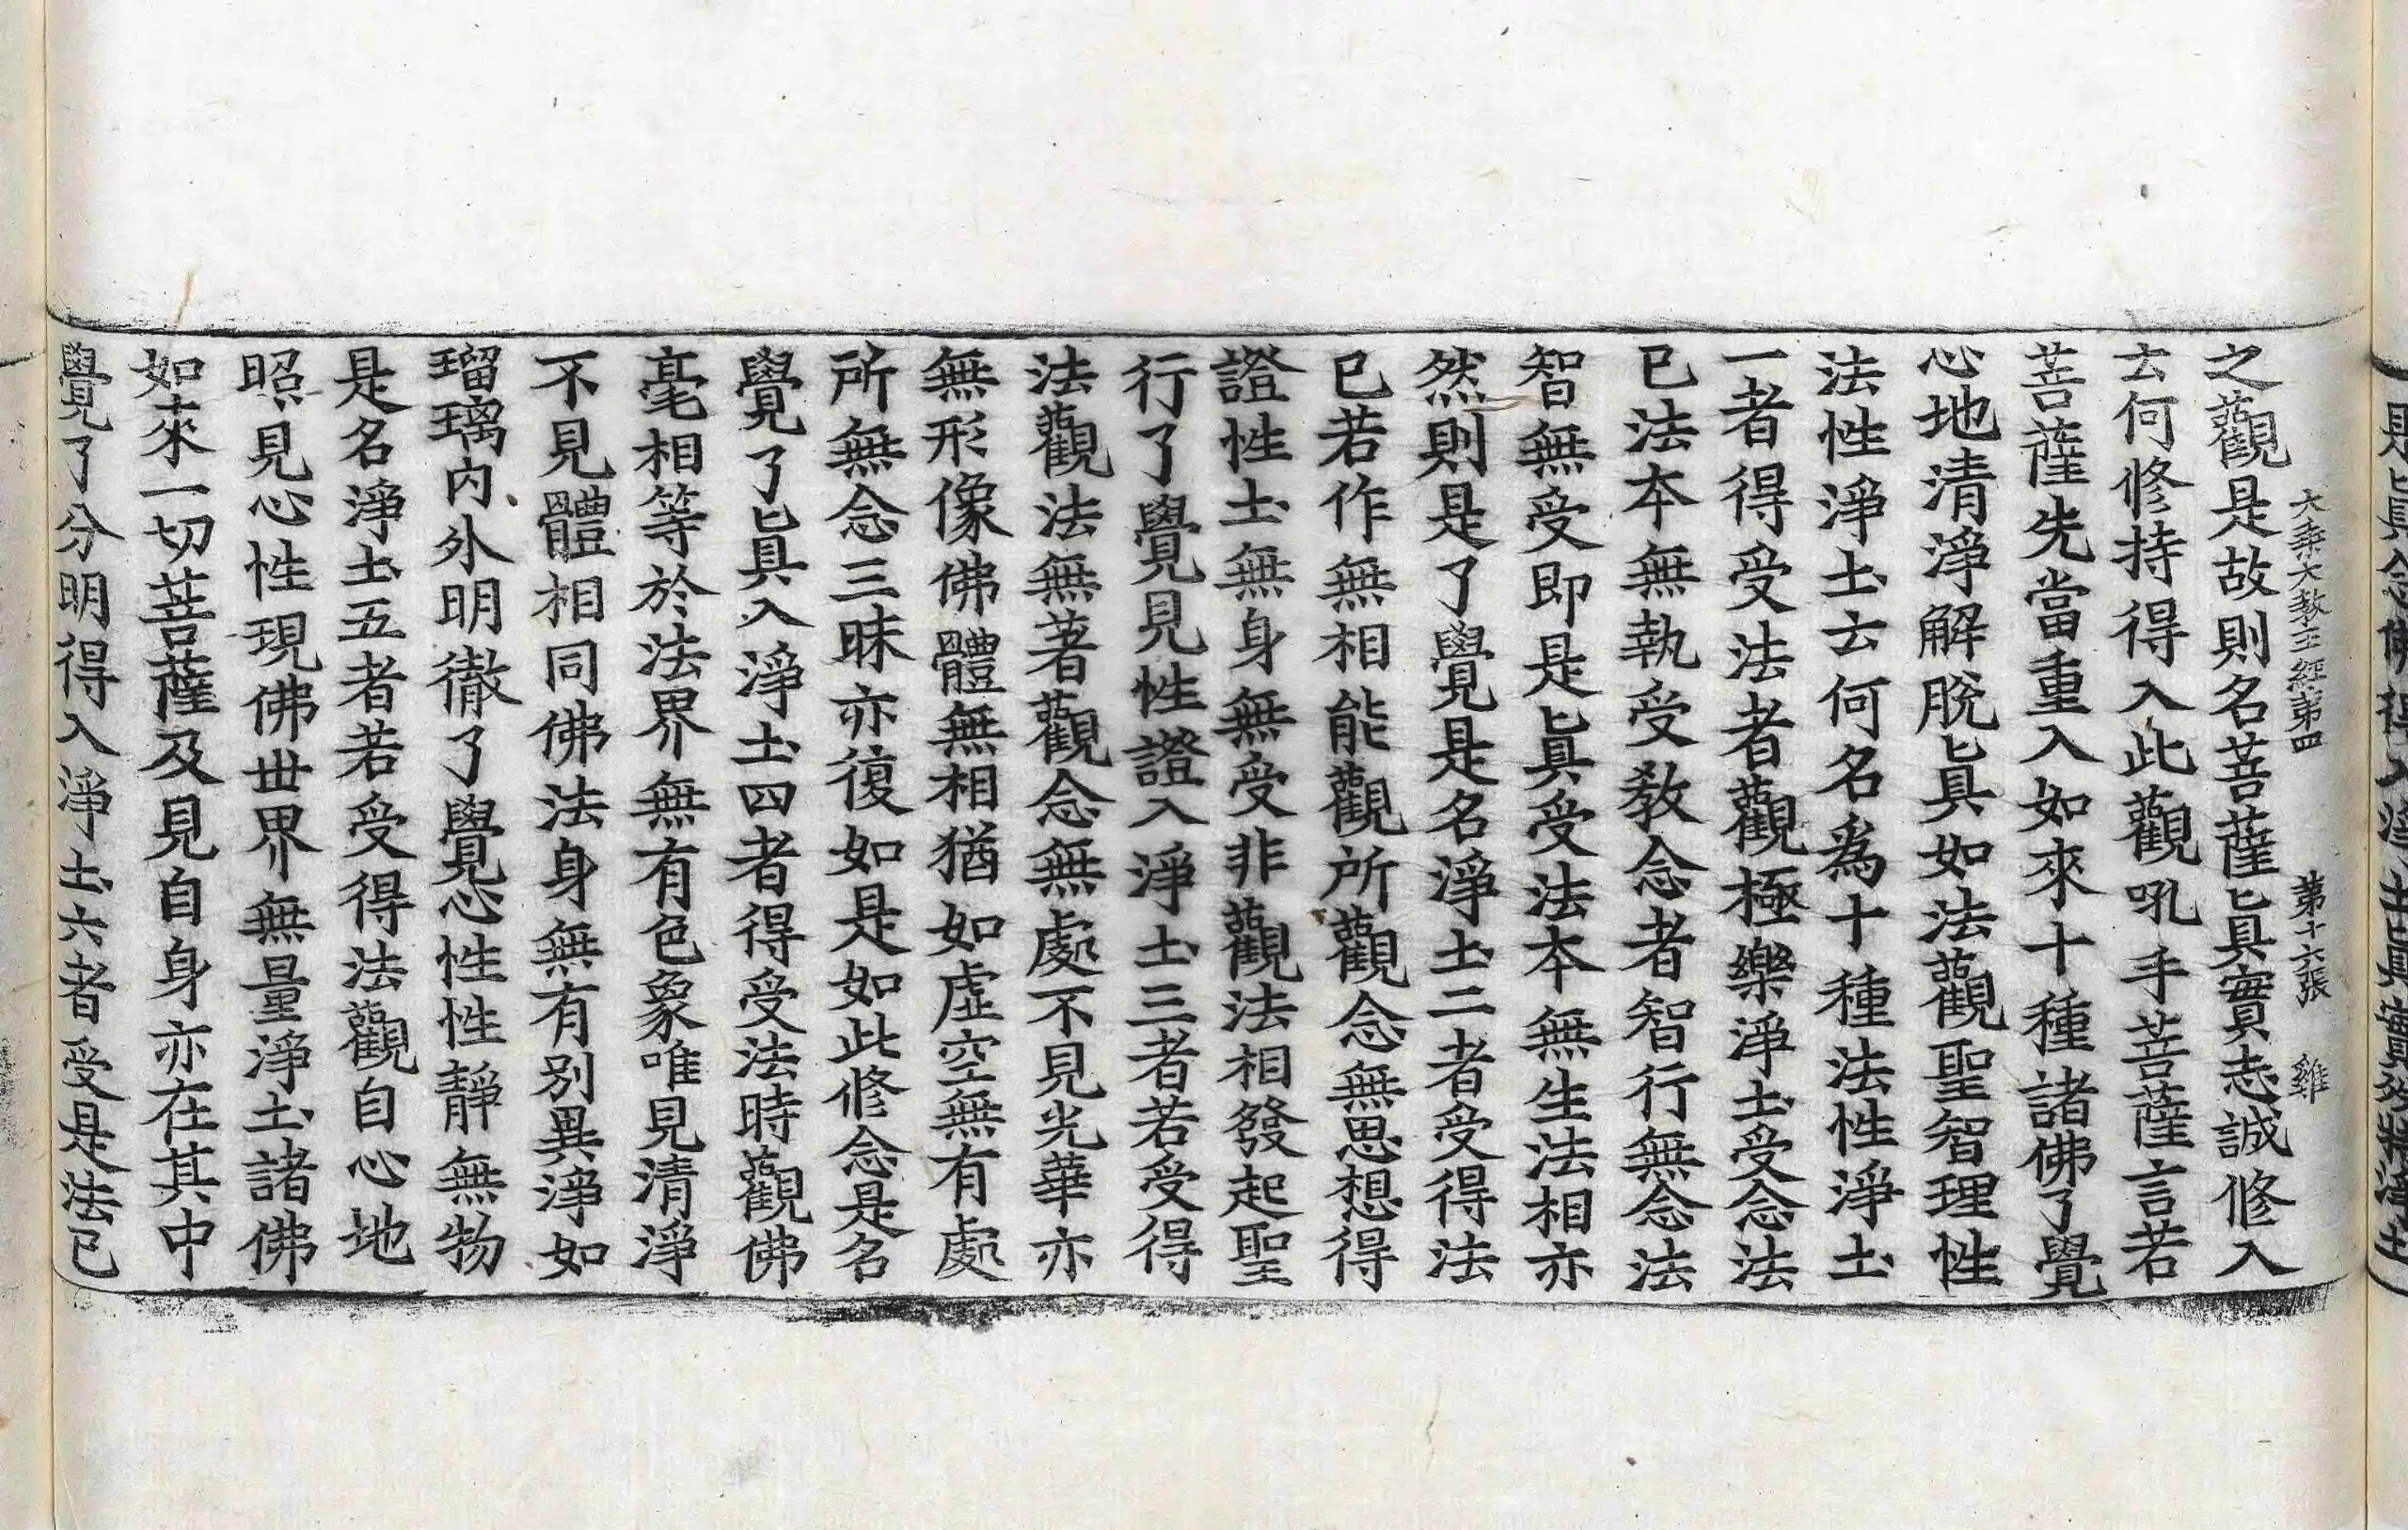 大乘大教王經第四　第十六張　雞
之觀是故則名菩薩眞實志誠修入
云何修持得入此觀吼手菩薩言若
菩薩先當重入如來十種諸佛了覺
心地清淨解脫眞如法觀聖智理性
法性淨土云何名爲十種法性淨土
一者得受法者觀極樂淨土受念法
已法本無執受教念者智行無念法
智無受即是眞受法本無生法相亦
然則是了覺是名淨土二者受得法
已若作無相能觀所觀念無思想得
證性土無身無受非觀法相發起聖
行了覺見性證入淨土三者若受得
法觀法無著觀念無處不見光華亦
無形像佛體無相猶如虛空無有處
所無念三昧亦復如是如此修念是名
覺了眞入淨土四者得受法時觀佛
毫相等於法界無有色象唯見清淨
不見體相同佛法身無有別異淨如
瑠璃內外明徹了覺心性性靜無物
是名淨土五者若受得法觀自心地
照見心性現佛世界無量淨土諸佛
如來一切菩薩及見自身亦在其中
覺了分明得入淨土六者受是法已